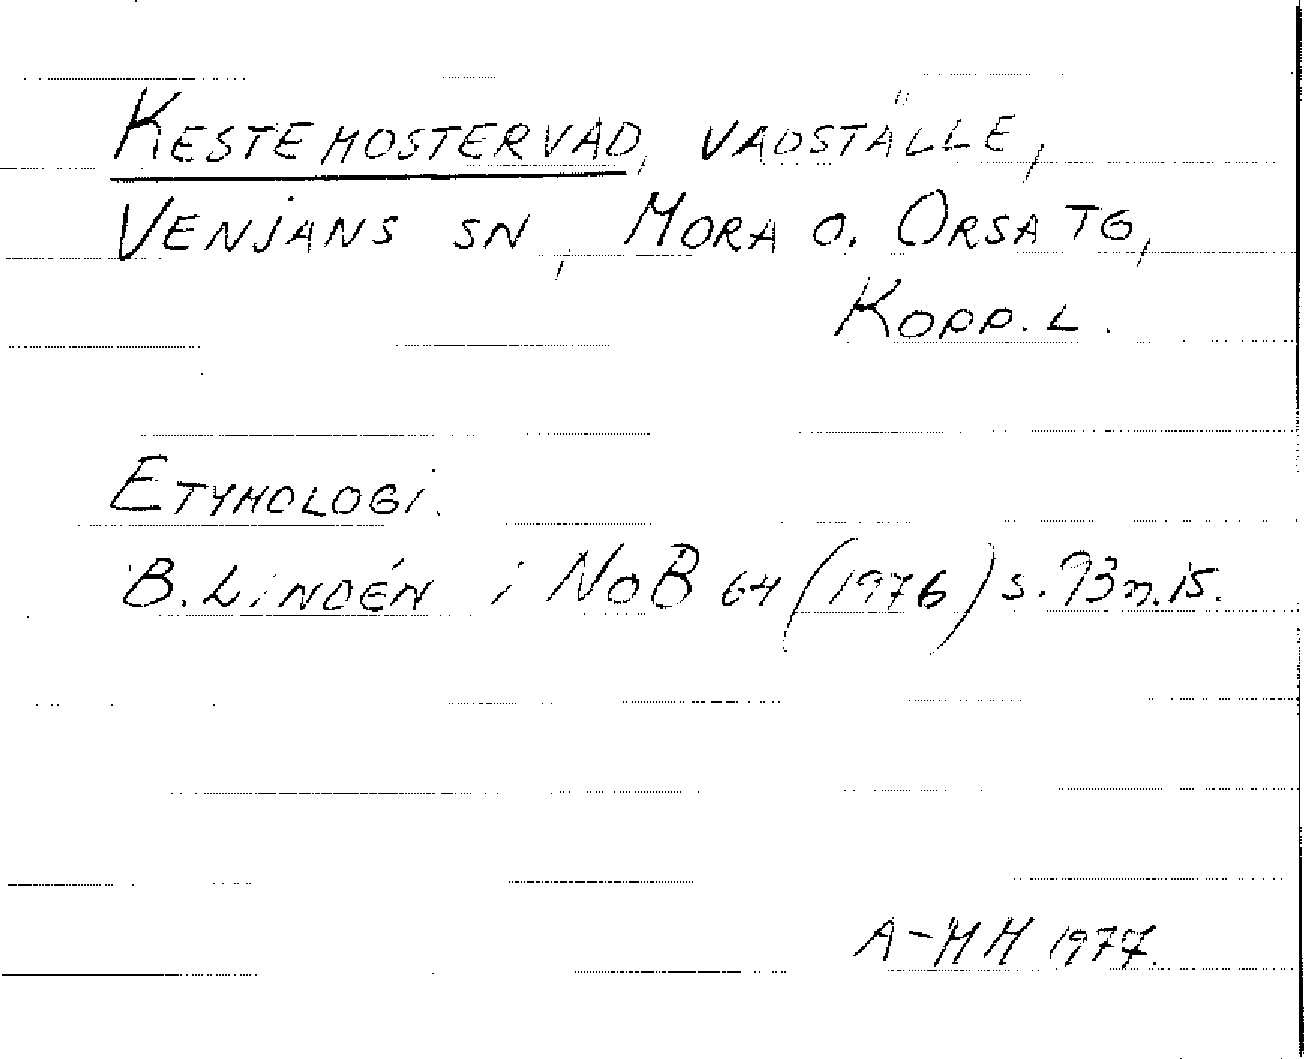 KESTEMOSTERVAD, VADSTÄLLE,
VENJANS SN, MORA O. ORSA TG,
KOPP. L.
ETYMOLOGI.
B. LINDÉN i NoB 64 (1976) s. 93 n. 15.
A-MM 1977.